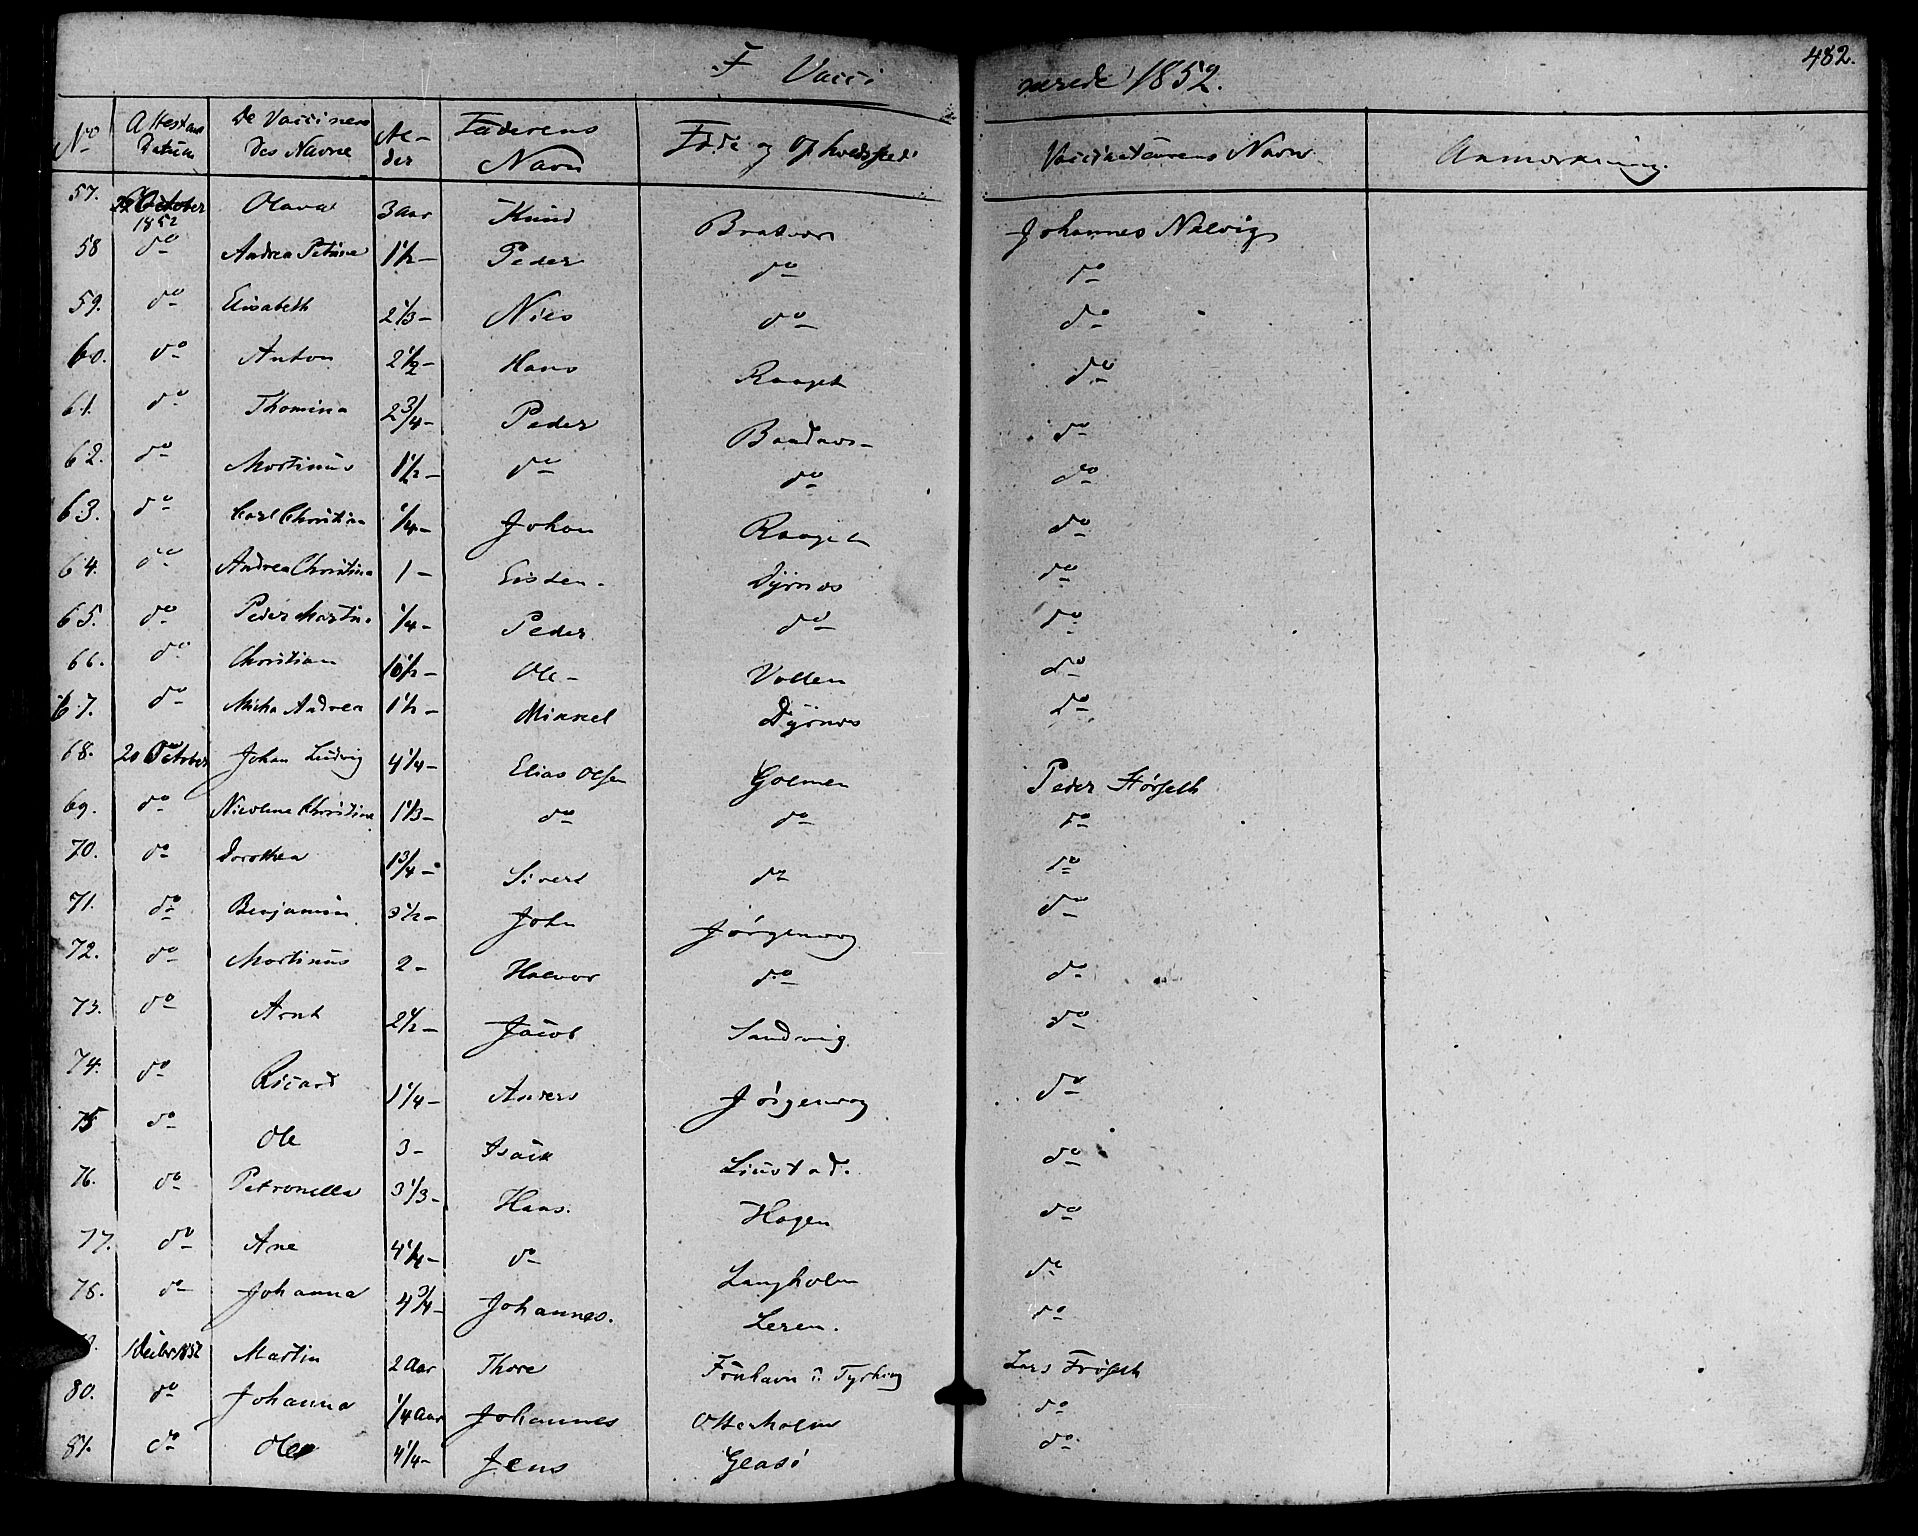 F Vacci nerede 1852. 482.
No Attestens Datum De Vaccineredes Navne Alder Faderens Navn Føde og Opholdssted Vaccinateurens Navn Anmærkning.
57. October 1852 Olava 3 Aar Knud Bratvær Johannes Nalvig
58 do Andrea Petrine 1 1/2 – Peder do do
59. do Elisabeth 2 1/3 – Niels do do
60. do Anton 2 1/2 – Hans Raaget do
61. do Thomina 2 3/4 – Peder Baadnæs – do
62. do Martinus 1 1/2 – do do do
63. do Carl Christian 1/4 – Johan Raaget do
64. do Andrea Christine 1 – Eisten – Dyrnæs do
65. do Peder Martin 1/4 – Peder do do
66. do Christian 10 1/2 – Ole – Vollen do
67. do Micha Andrea 1 1/2 – Mikkel Dyrnæs do
68. 20 October Johan Ludvig 4 1/4 – Elias Olsen Golmen Peder Størseth
69. do Nicoline Christine 1 1/3 – do do do
70. do Dorothea 1 3/4 – Sivert do do
71. do Benjamin 3 1/2 – John Jørgenvog do
72. do Martinus 2 – Halvor do do
73. do Arnt 2 1/2 – Jacob Sandvig do
74. do Ricard 1 1/4 – Anders Jörgenvog do
75 do Ole 3 – Isack Liustad. do
76. do Petronella 3 1/3 – Haas. Hagen do
77. do Ane 4 1/4 – do Langholm do
78. do Johanna 4 3/4 – Johannes. Leren. do
Martin 2 Aar Thore Lars Frøseth
80. do Johanna 1/4 Aar Johannes Otterholm do
81. do Ole 4 1/4 – Jens Glasö do